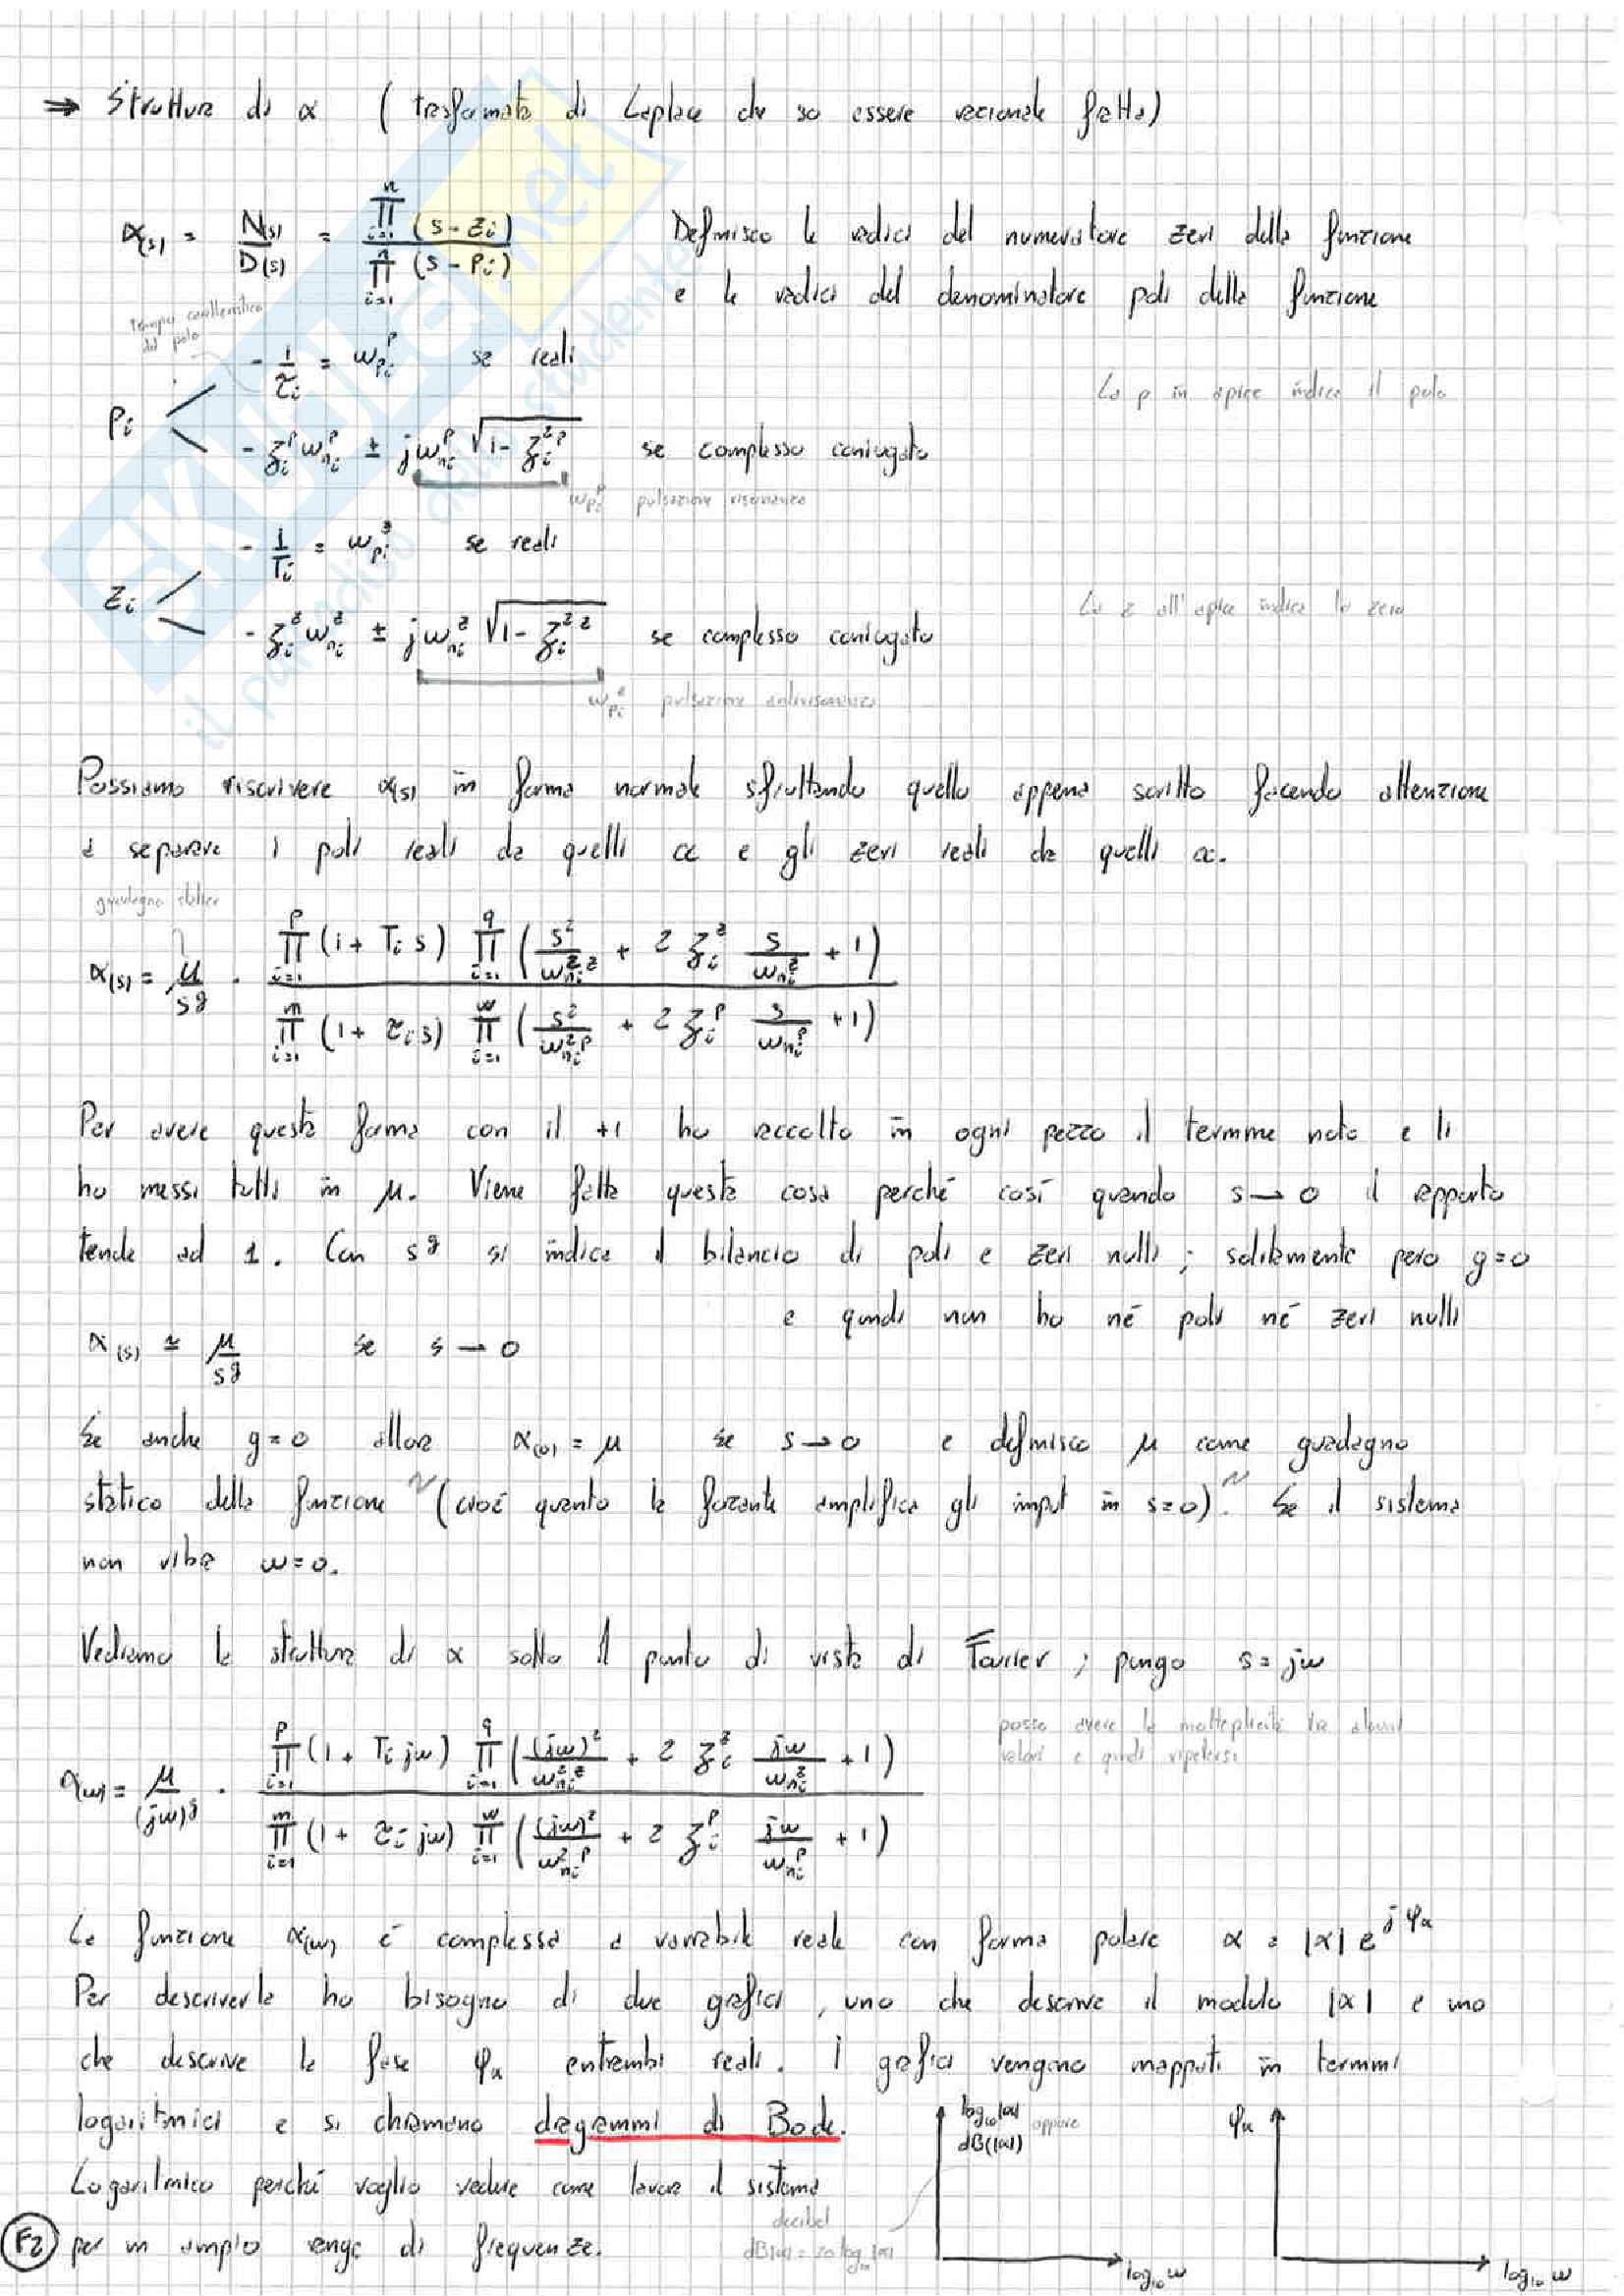 ⇒ Struttura di α ( trasformata di Laplace che so essere razionale fratta)
α(s) = N(s)/D(s) = ∏_{i=1}^{n} (s - z_i) / ∏_{i=1}^{n} (s - p_i)
Definisco le radici del numeratore zeri della funzione
e le radici del denominatore poli della funzione
tempo caratteristico
del polo
p_i
- 1/τ_i = ω_{p_i}^p se reali
La p in apice indica il polo
- ξ_i^p ω_{n_i}^p ± j ω_{n_i}^p √(1 - ξ_i^{2 p}) se complesso coniugato
ω_{p_i}^p pulsazione risonanza
z_i
- 1/T_i = ω_{p_i}^z se reali
La z all'apice indica lo zero
- ξ_i^z ω_{n_i}^z ± j ω_{n_i}^z √(1 - ξ_i^{2 z}) se complesso coniugato
ω_{p_i}^z pulsazione antirisonanza
Possiamo riscrivere α(s) in forma normale sfruttando quello appena scritto facendo attenzione
a separare i poli reali da quelli cc e gli zeri reali da quelli cc.
guadagno statico
α(s) = μ/s^g · ∏_{i=1}^{p} (1 + T_i s) ∏_{i=1}^{q} (s²/ω_{n_i}^{2 z} + 2 ξ_i^z s/ω_{n_i}^z + 1) / ∏_{i=1}^{m} (1 + τ_i s) ∏_{i=1}^{w} (s²/ω_{n_i}^{2 p} + 2 ξ_i^p s/ω_{n_i}^p + 1)
Per avere questa forma con il +1 ho raccolto in ogni pezzo il termine noto e li
ho messi tutti in μ. Viene fatta questa cosa perché così quando s → 0 il rapporto
tende ad 1. Con s^g si indica il bilancio di poli e zeri nulli ; solitamente però g=0
e quindi non ho né poli né zeri nulli
α(s) ≃ μ/s^g se s → 0
Se anche g=0 allora α(0) = μ se s → 0 e definisco μ come guadagno
statico della funzione ~ (cioè quanto la forzante amplifica gli input in s=0) ~. Se il sistema
non vibra ω=0.
Vediamo la struttura di α sotto il punto di vista di Fourier ; pongo s = jω
posso avere la molteplicità tra alcuni
valori e quindi ripetersi
α(ω) = μ/(jω)^g · ∏_{i=1}^{p} (1 + T_i jω) ∏_{i=1}^{q} ((jω)²/ω_{n_i}^{2 z} + 2 ξ_i^z jω/ω_{n_i}^z + 1) / ∏_{i=1}^{m} (1 + τ_i jω) ∏_{i=1}^{w} ((jω)²/ω_{n_i}^{2 p} + 2 ξ_i^p jω/ω_{n_i}^p + 1)
La funzione α(ω) è complessa a variabile reale con forma polare α = |α| e^{jφα}
Per descriverla ho bisogno di due grafici , uno che descrive il modulo |α| e uno
che descrive la fase φα entrambi reali. I grafici vengono mappati in termini
logaritmici e si chiamano diagrammi di Bode.
log₁₀|α| oppure
dB(|α|)
φα
Logaritmico perché voglio vedere come lavora il sistema
per un ampio range di frequenze.
decibel
dB|α| = 20 log₁₀|α|
log₁₀ ω
log₁₀ ω
F2
SKUOLA.net
il paradiso dello studente